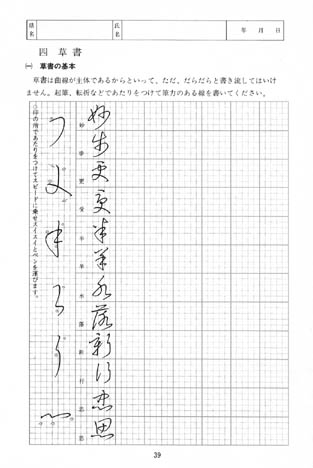 級名
氏名
年 月 日
四 草書
㈠ 草書の基本
草書は曲線が主体であるからといって、ただ、だらだらと書き流してはいけ
ません。起筆、転折などであたりをつけて弾力のある線を書いてください。
○印の所であたりをつけてスピードに乗せスイスイとペンを運びます。
妙 歩 更 受 半 羊 水 落 新 行 志 思
39